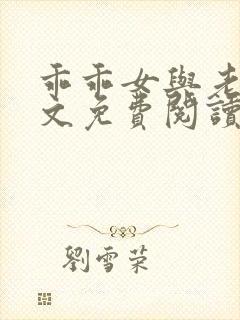 乖乖女與老
文免費閱讀
劉雪荣